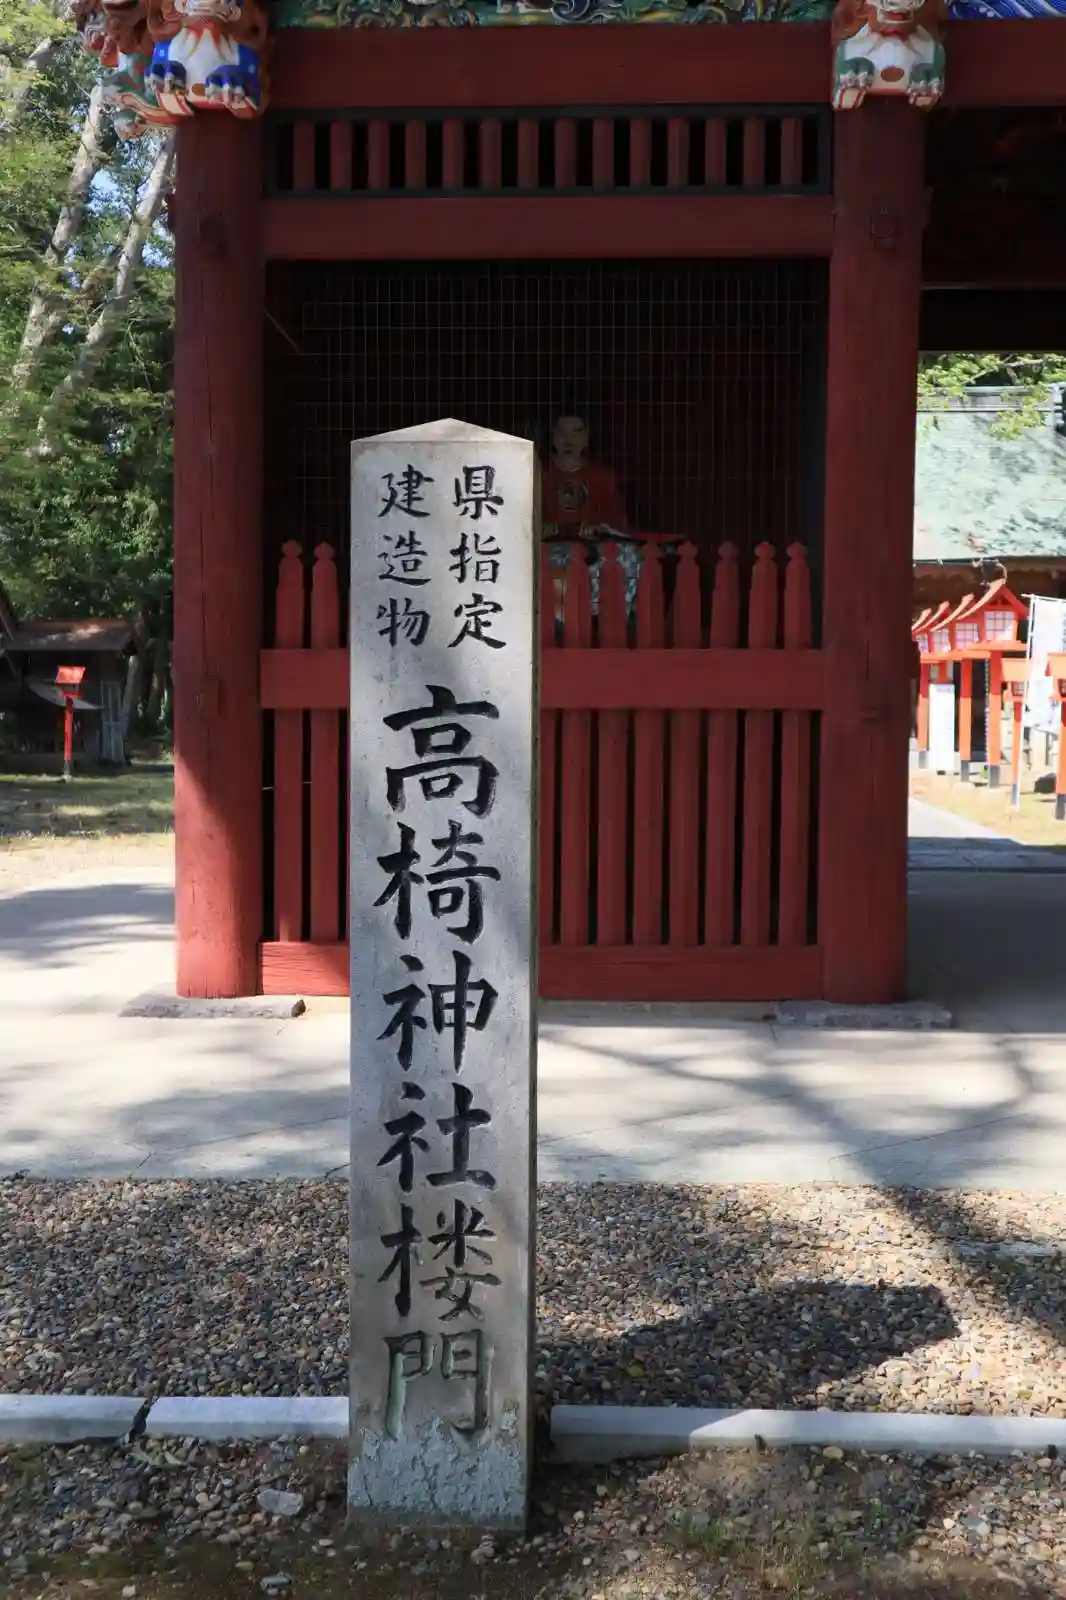 県指定
建造物
高椅神社楼門